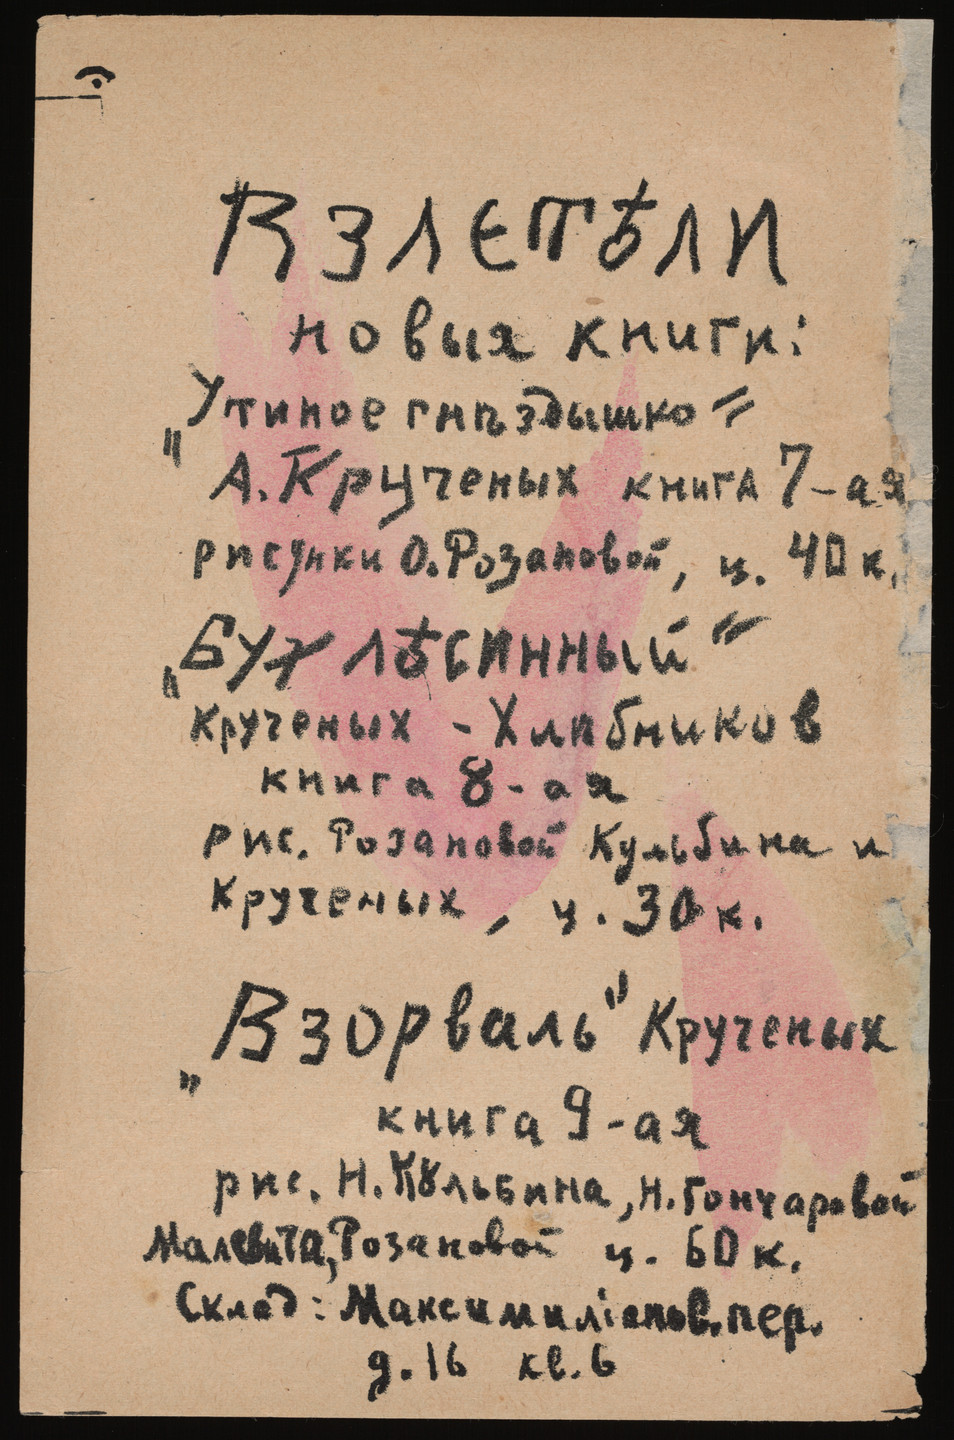 ВЗЛЕТѢЛИ
новыя книги:
„Утиное гнѣздышко“
А. Крученых книга 7-ая
рисунки О. Розановой, ц. 40 к.
„БУХ ЛѢСИННЫЙ“
Крученых - Хлѣбников
книга 8-ая
рис. Розановой Кульбина и
Крученых, ц. 30 к.
„Взорваль“ Крученых
книга 9-ая
рис. Н. Кульбина, Н. Гончаровой
Малевича, Розановой ц. 60 к.
Склад: Максимиліанов. пер.
д. 16 кв. 6